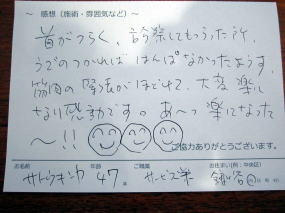 ～ 感想（施術・雰囲気など）～
首がつらく、診察してもらった所、
うでのつかれがはんぱなかったようす、
筋肉の緊張がほぐれて、大変楽に
なり感動です。あ～っ楽になった
～!!
ご協力ありがとうございます。
お名前 年齢 ご職業 お住まい(例：中央区)
サトウ 47 歳 サービス業